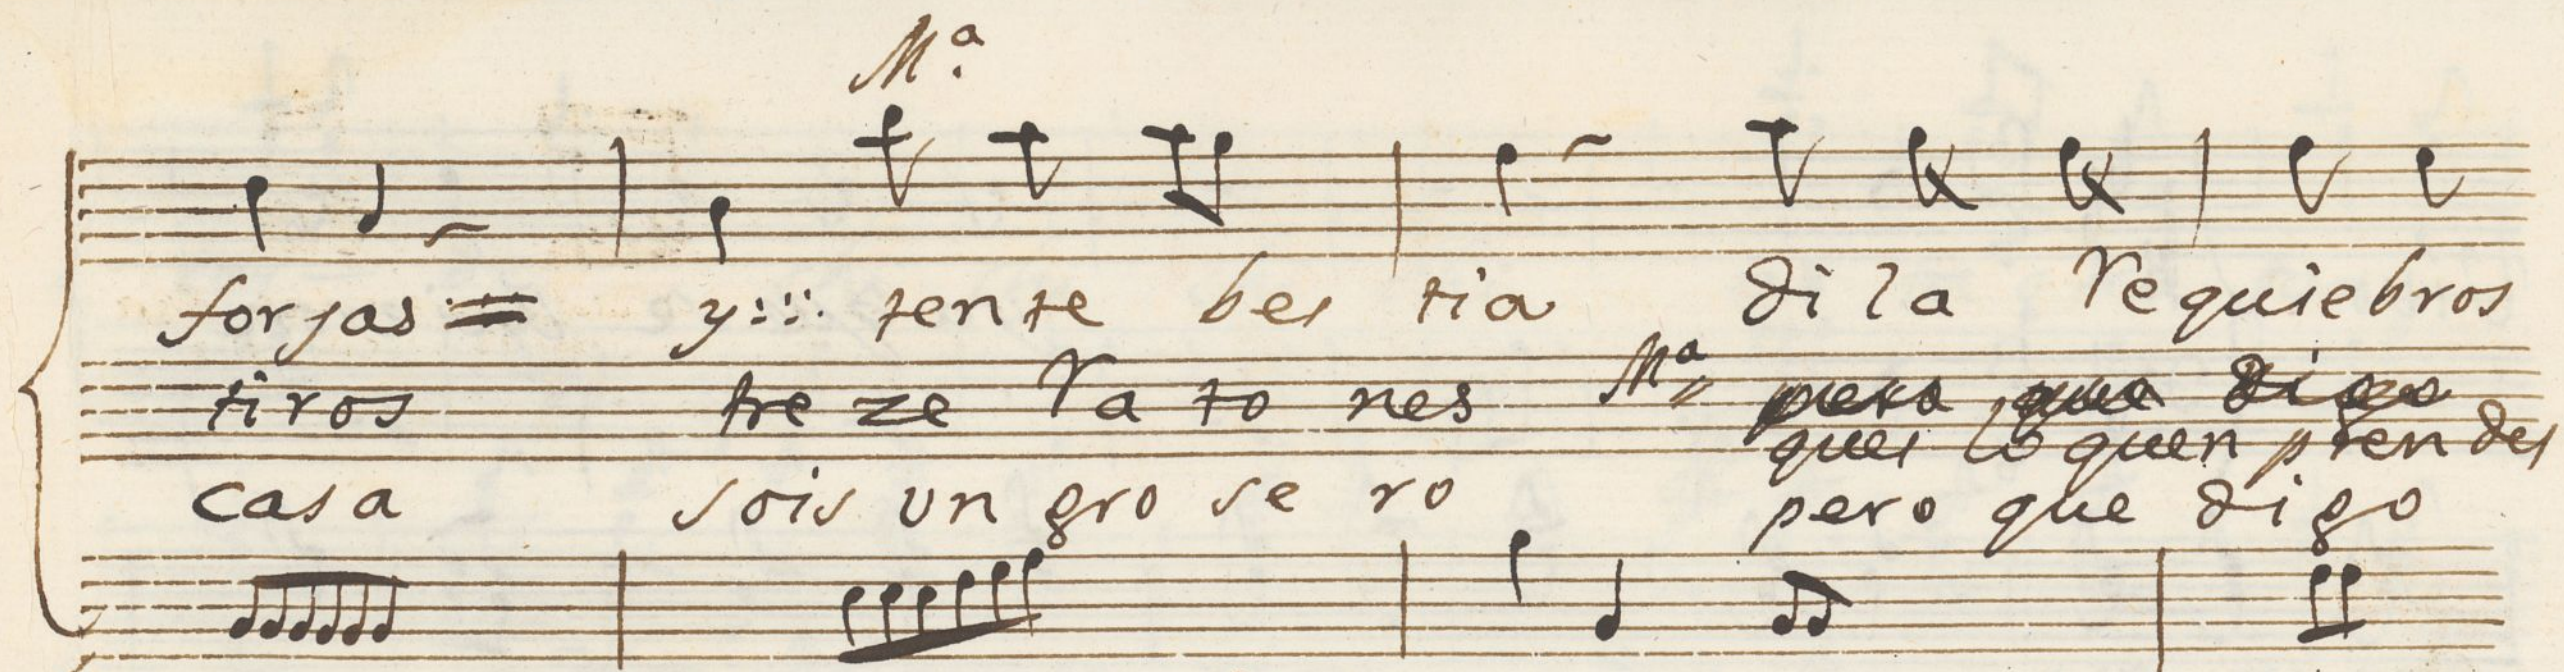 Mª
forsas = y:::. tente bes tia di la requiebros
tiros tre ze ra to nes Mª pero que digo
ques lo quen pren des
casa sois un gro se ro pero que digo